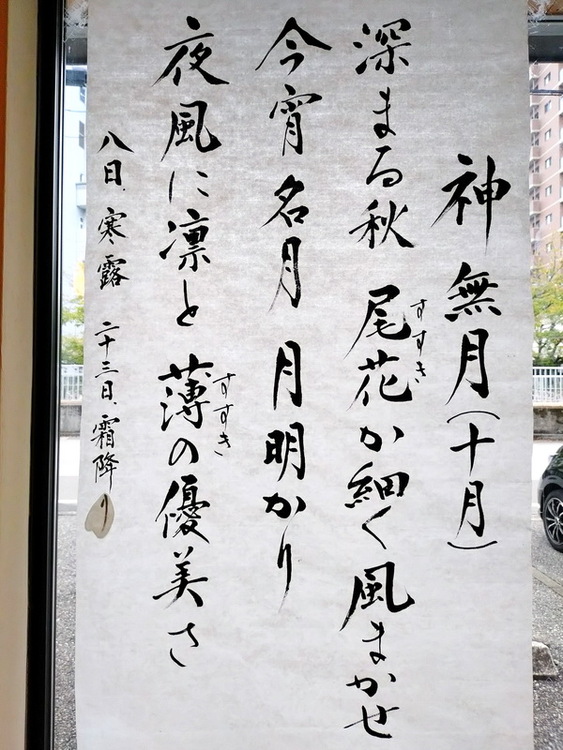 神無月(十月)
深まる秋 尾花か細く風まかせ
すすき
今宵名月 月明かり
夜風に凛と 薄の優美さ
すすき
八日、寒露 二十三日、霜降り